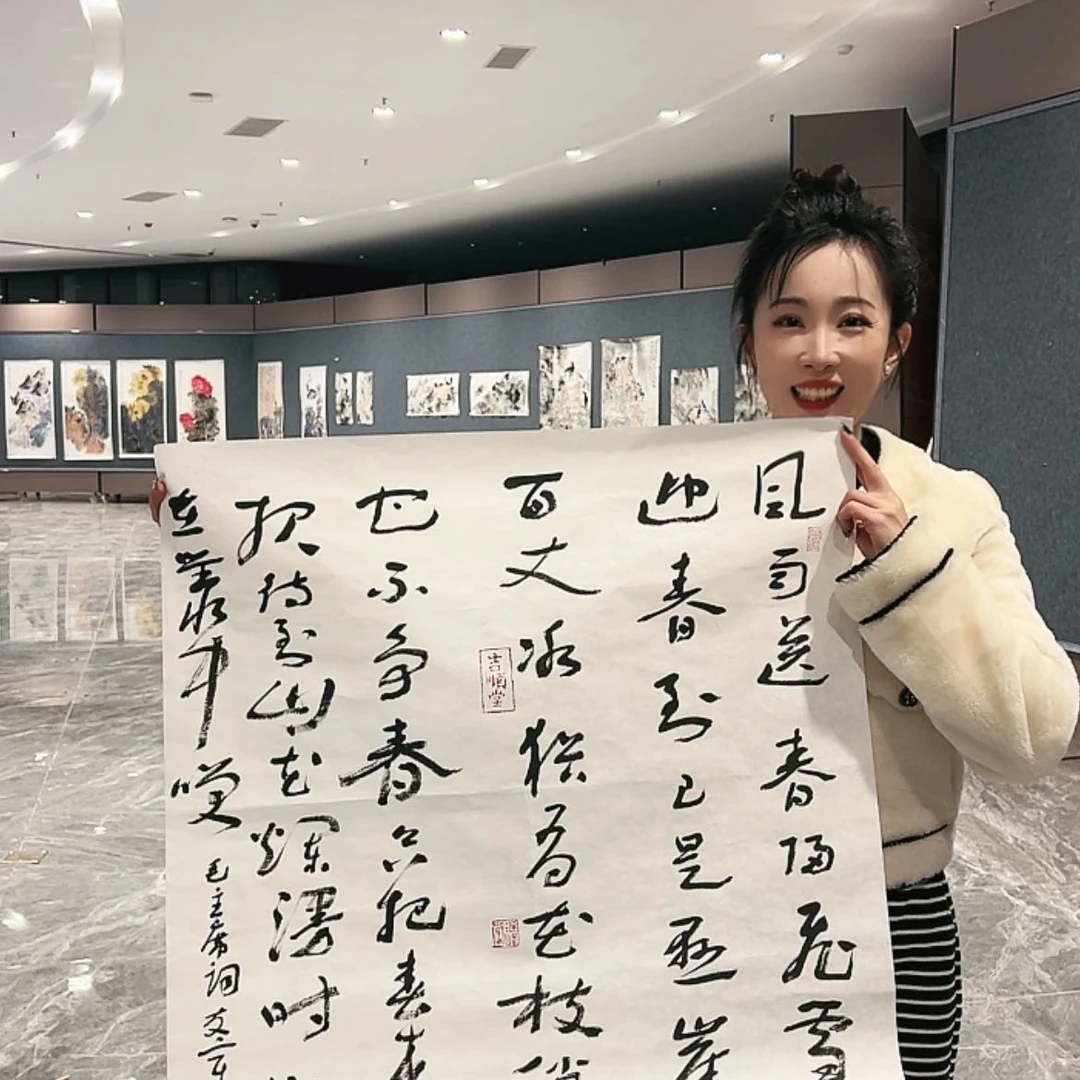 风雨送春归飞雪
迎春到已是悬崖
百丈冰猶有花枝俏
也不争春只把春来
报待到山花爛漫时
在叢中咲
毛主席词
吉順堂